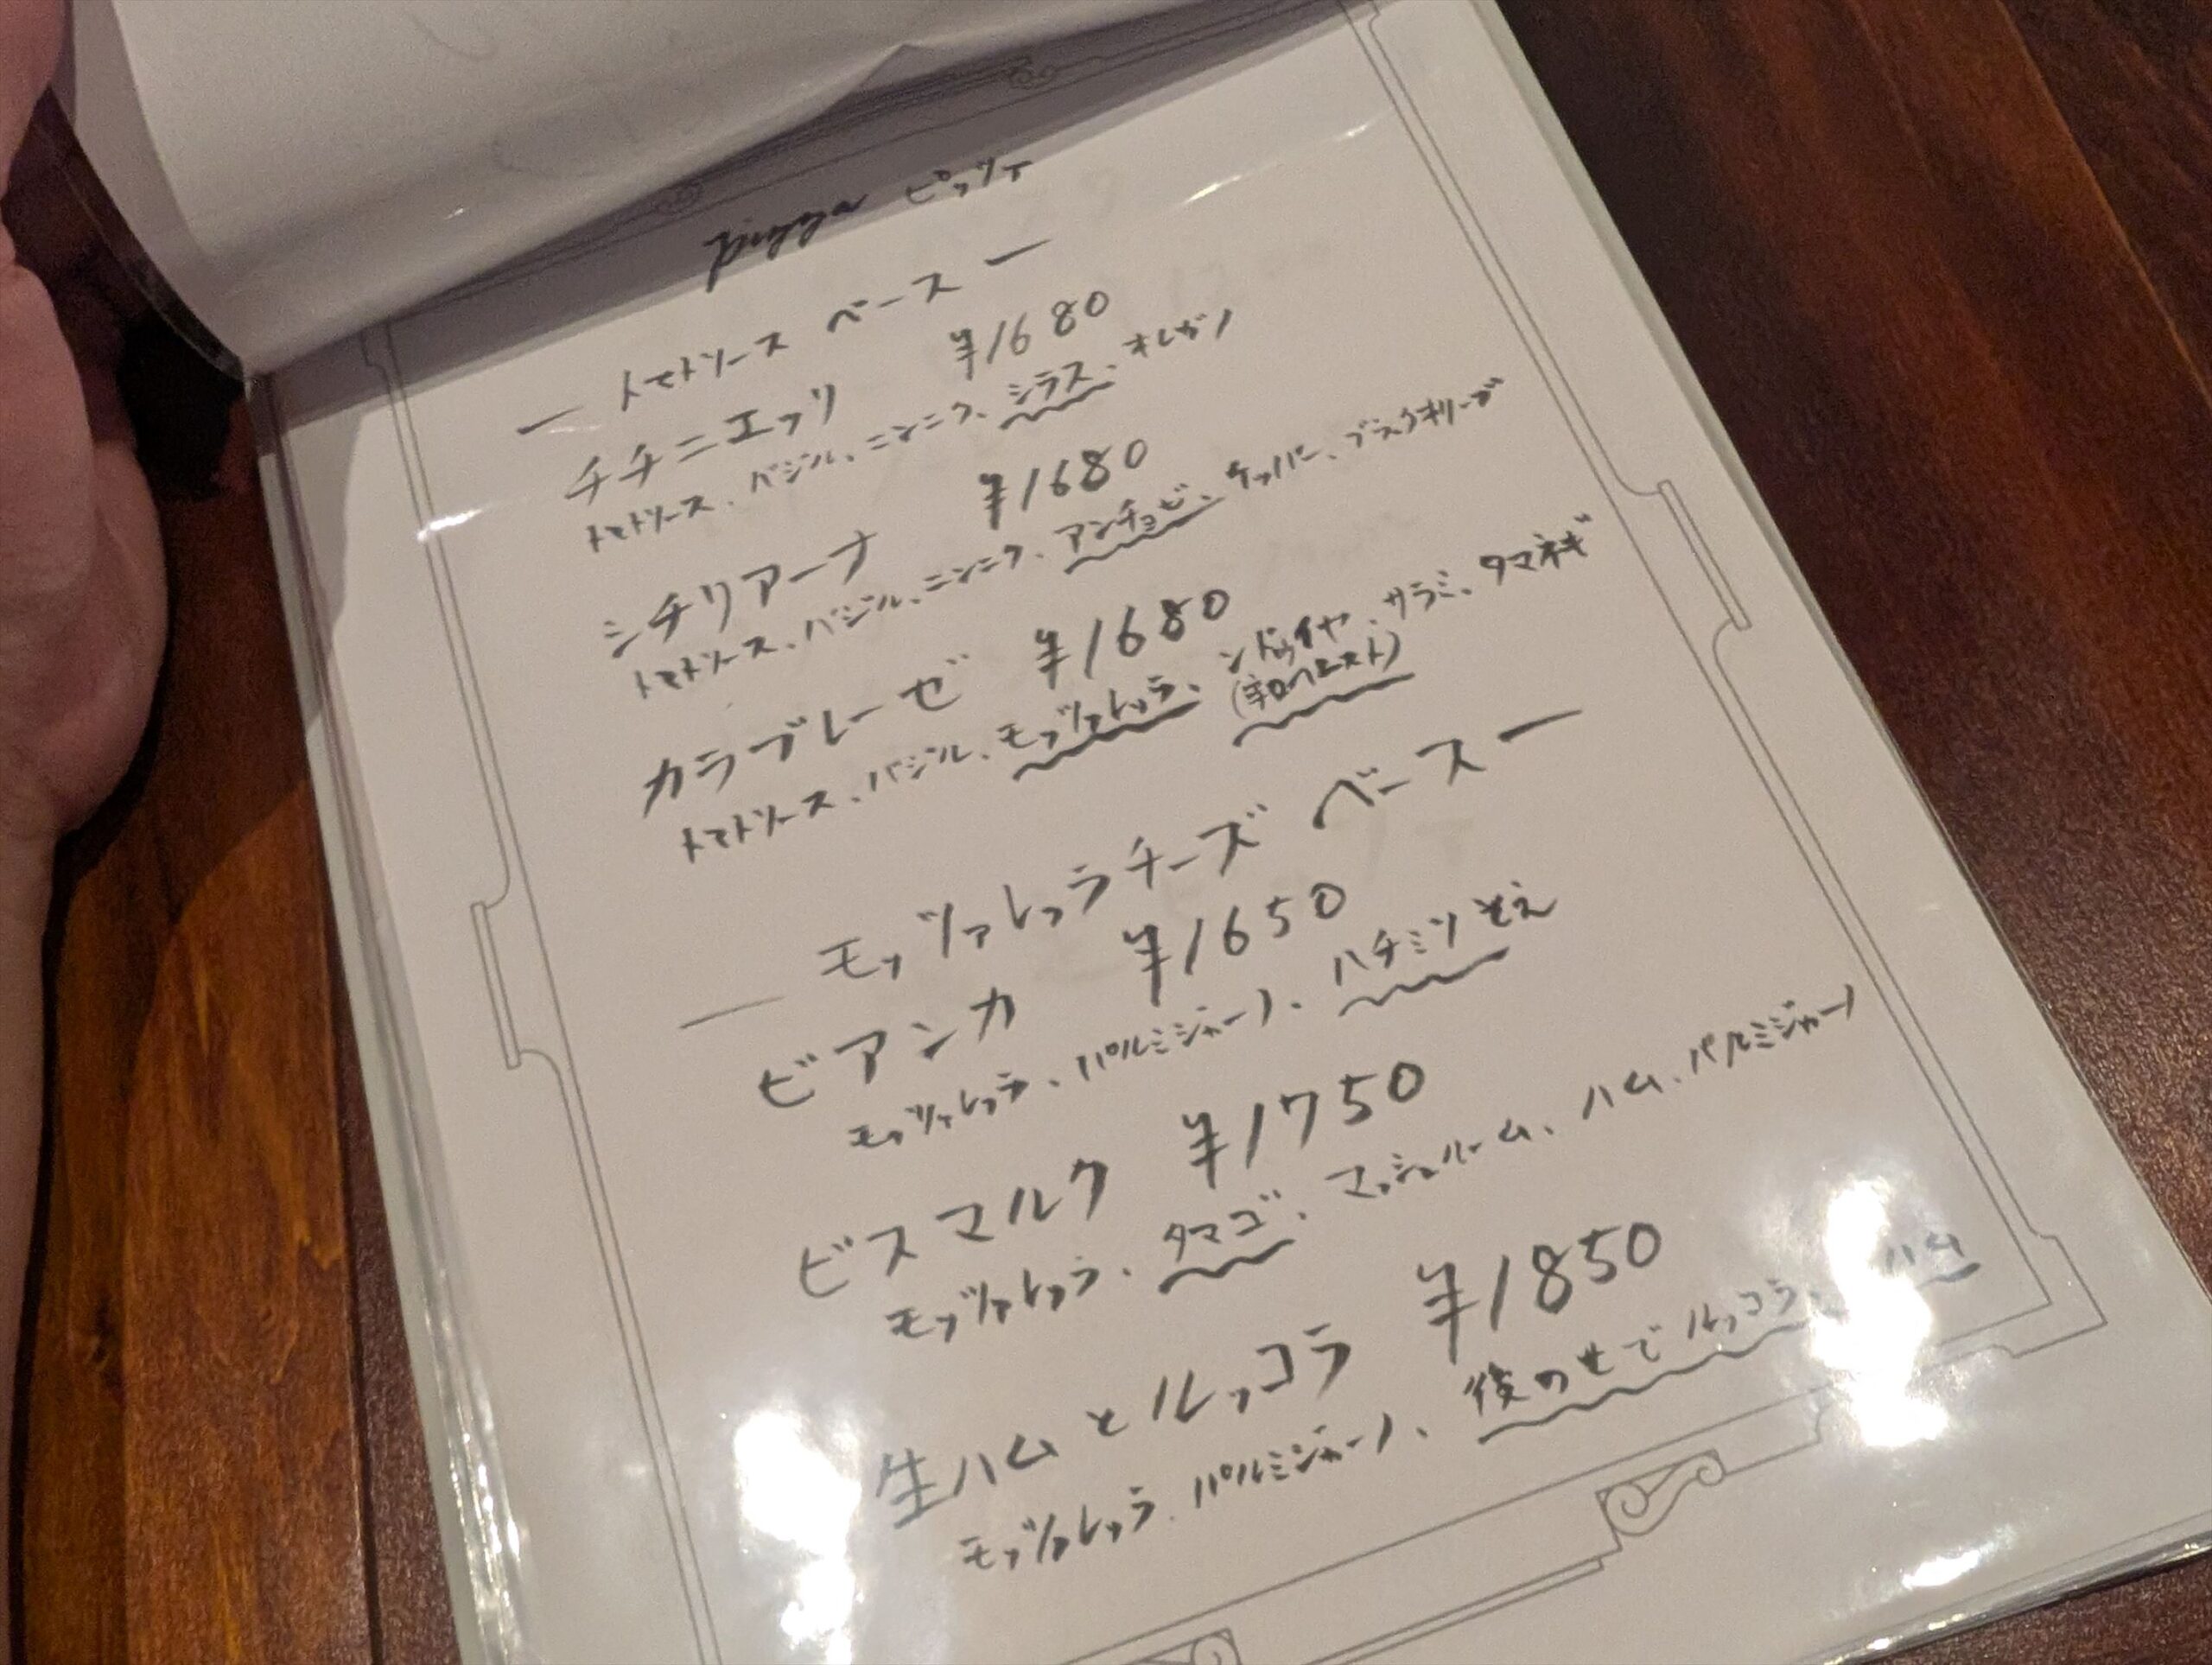 pizza ピッツァ
— トマトソース ベース —
チチニエッリ ¥1680
トマトソース、バジル、ニンニク、シラス、オレガノ
シチリアーナ ¥1680
トマトソース、バジル、ニンニク、アンチョビ、ケッパー、ブラックオリーブ
カラブレーゼ ¥1680
トマトソース、バジル、モッツァレッラ、ンドゥイヤ、サラミ、タマネギ
(辛口ペースト)
— モッツァレッラチーズ ベース —
ビアンカ ¥1650
モッツァレッラ、パルミジャーノ、ハチミツ そえ
ビスマルク ¥1750
モッツァレッラ、タマゴ、マッシュルーム、ハム、パルミジャーノ
生ハムとルッコラ ¥1850
モッツァレッラ、パルミジャーノ、後のせでルッコラ、ハム